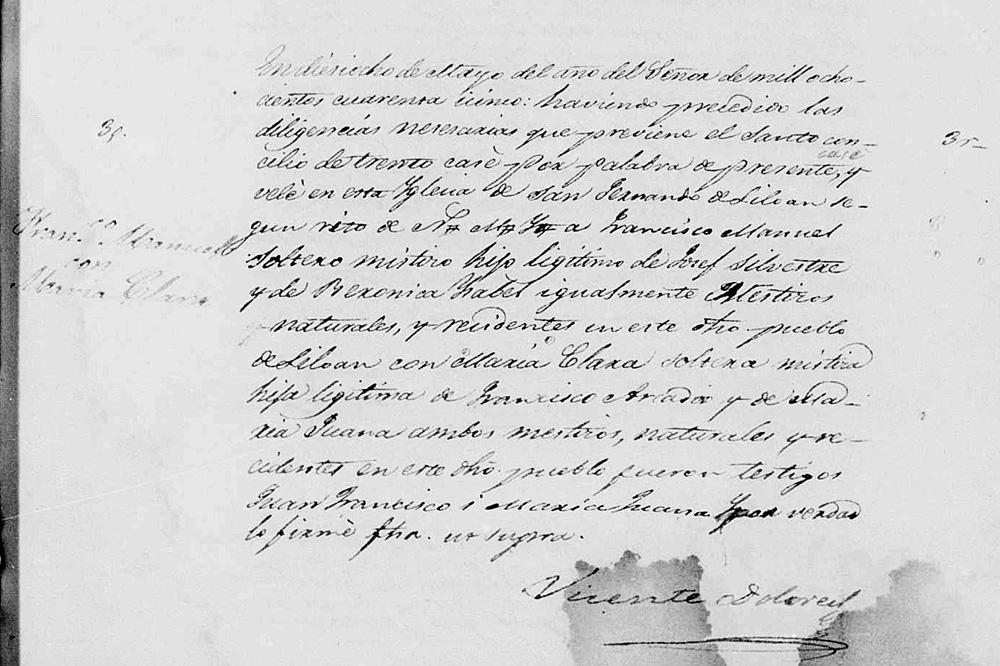 En diesiocho de Mayo del año del Señor de mill ocho-
cientos cuarenta icinco: haviendo precedido las
diligencias nesesarias que previene el Santo con-
39.
35-
cilio de trento casè por palabra de presente, y
velè en esta Yglecia de San Fernando de Liloan se-
gun rito de N. M. Y. a Francisco Manuel
Fran.co Manuel
con
Maria Clara
soltero mistiso hijo ligitimo de Josef Silvestre
y de Beronica Ysabel igualmente Mestisos
naturales, y recidentes en este dho pueblo
de Liloan con Maria Clara soltera mistisa
hija ligitima de Francisco Amador y de Ma-
ria Juana ambos mestisos, naturales y re-
cidentes en este dho. pueblo fueron testigos
Juan Francisco i Maria Juana Y por verdad
lo firmè fha. ut supra.
Vicente Dolores